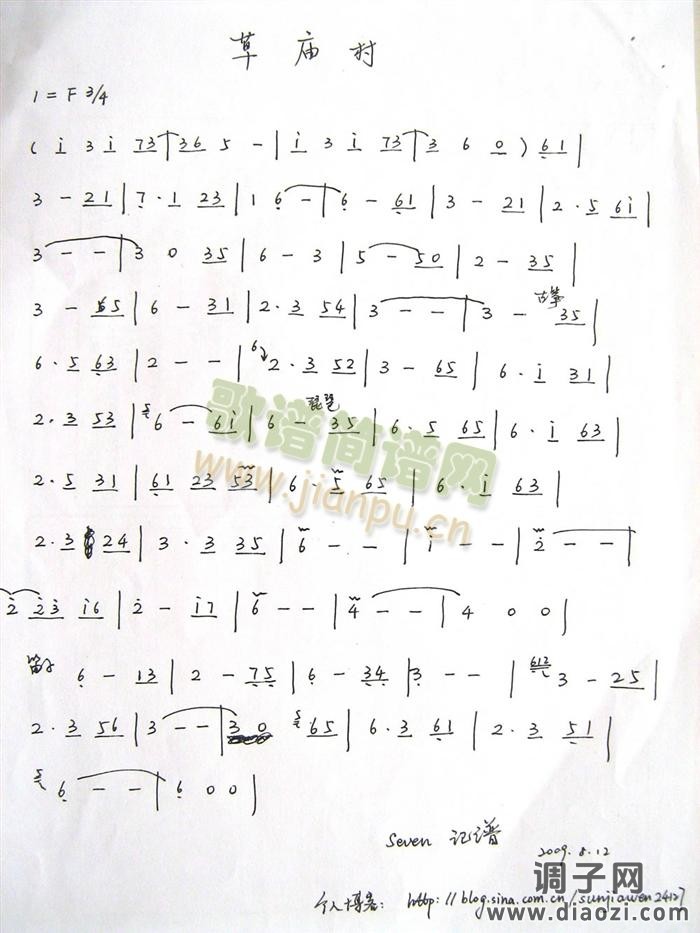 草庙村
1 = F 3/4
( i 3 i 73 | 36 5 - | i 3 i 73 | 3 6 0 ) 61 |
3 - 21 | 7 · 1 23 | 1 6 - | 6 - 61 | 3 - 21 | 2 · 5 6i |
3 - - | 3 0 35 | 6 - 3 | 5 - 50 | 2 - 35 |
3 - 65 | 6 - 31 | 2 · 3 54 | 3 - - | 3 - 古筝 35 |
6 · 5 63 | 2 - - | 6 2 · 3 52 | 3 - 65 | 6 · i 31 |
2 · 3 53 | 5 6 - 6i | 6 - 琵琶 35 | 6 · 5 65 | 6 · i 63 |
2 · 5 31 | 61 23 53 | 6 · 5 65 | 6 · i 63 |
2 · 3 24 | 3 · 3 35 | 6 - - | i - - | 2 - - |
2 23 i6 | 2 - i7 | 6 - - | 4 - - | 4 0 0 |
笛子 6 - 13 | 2 - 75 | 6 - 34 | 3 - - | 612 3 - 25 |
2 · 3 56 | 3 - - | 3 0 5 65 | 6 · 3 61 | 2 · 3 51 |
5 6 - - | 6 0 0 |
歌谱简谱网
www.jianpu.cn
Seven 记谱 2009.8.12
个人博客: http://blog.sina.com.cn/sunjiawen24127
调子网
www.diaozi.com